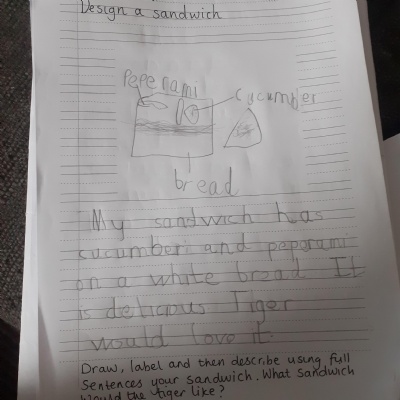 Design a sandwich
Pepenami
cucumber
bread
My sandwich has
cucumberi and peperami
on a white bread It
is delicious Tiger
would love it.
Draw, label and then describe using full
sentences your sandwich. What sandwich
would the tiger like?